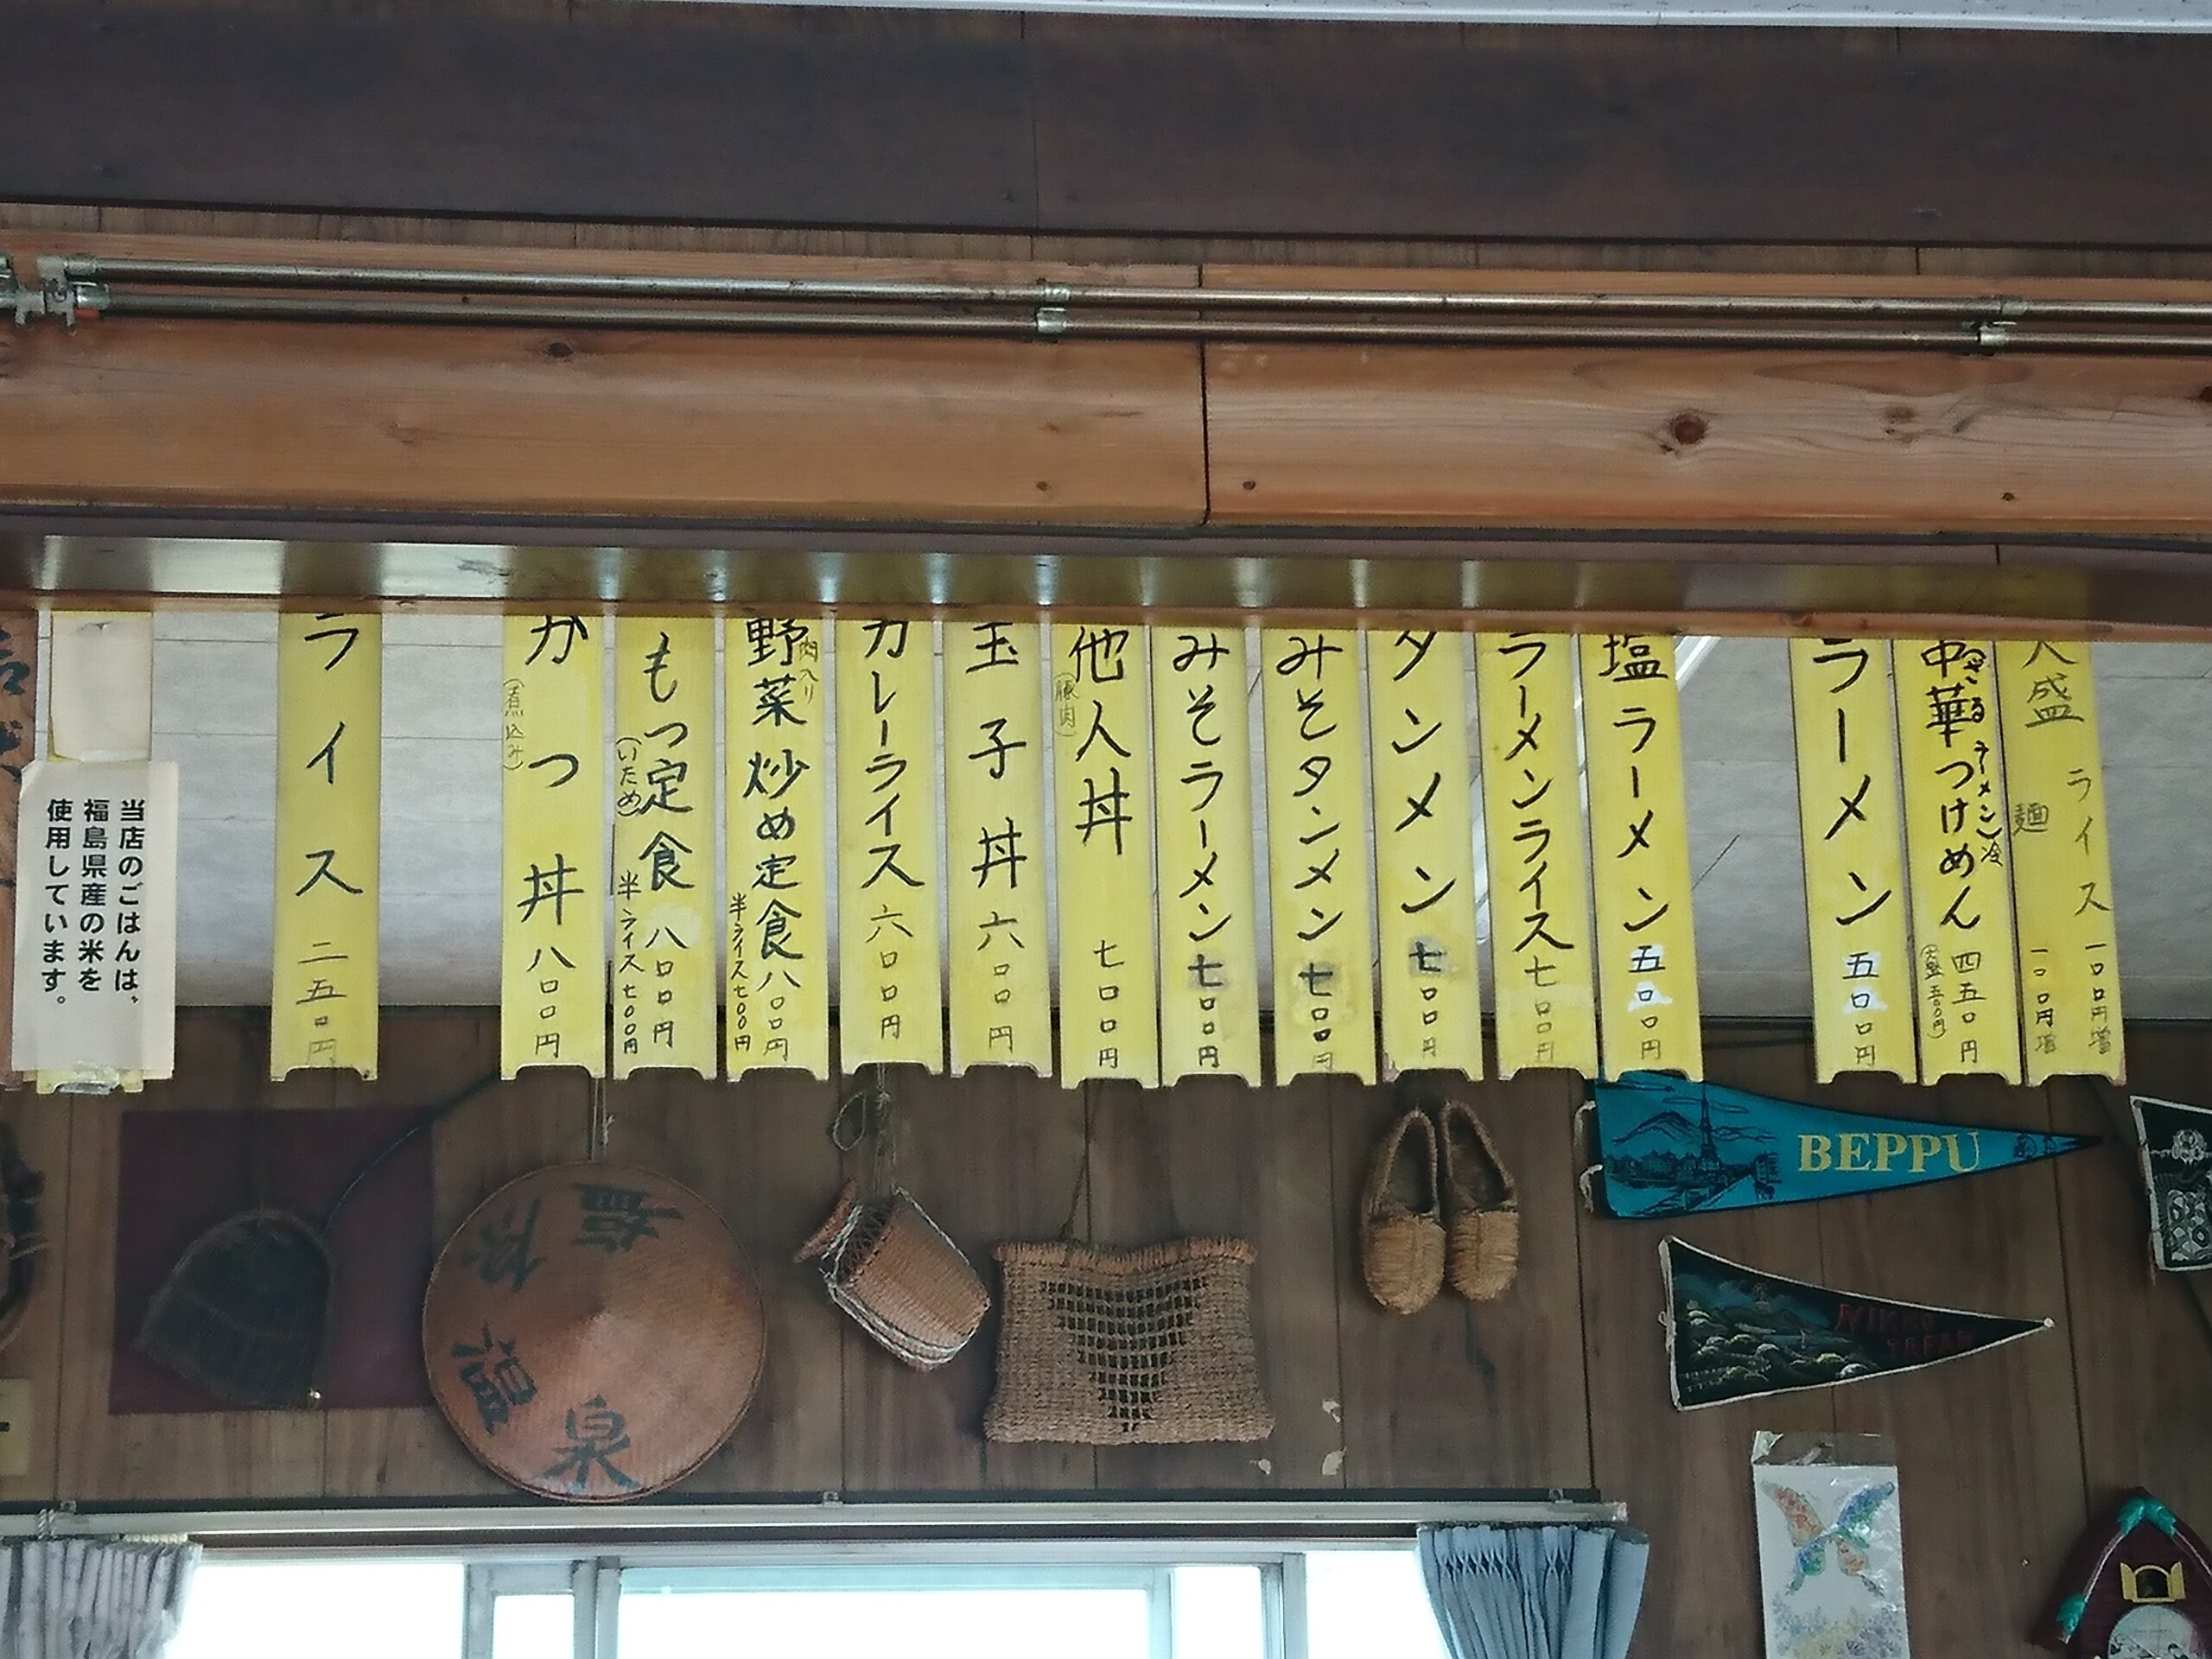 大盛
ライス 一〇〇円増
麺 一〇〇円増
中華つけめん 四五〇円
(ざるラーメン)冷
(大盛 五五〇円)
ラーメン 五〇〇円
塩ラーメン 五〇〇円
ラーメンライス 七〇〇円
タンメン 七〇〇円
みそタンメン 七〇〇円
みそラーメン 七〇〇円
他人丼 七〇〇円
(豚肉)
玉子丼 六〇〇円
カレーライス 六〇〇円
野菜炒め定食 八〇〇円
肉入り
半ライス 七〇〇円
もつ定食 八〇〇円
(いため)
半ライス 七〇〇円
かつ丼 八〇〇円
(煮込み)
ライス 二五〇円
当店のごはんは、
福島県産の米を
使用しています。
BEPPU
NIKKO
塩原温泉